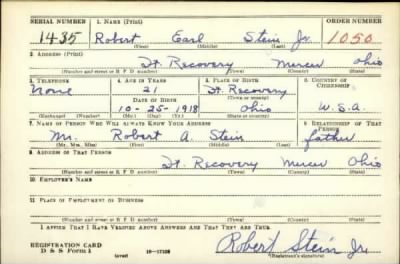 SERIAL NUMBER 1. NAME (Print) ORDER NUMBER
1435 Robert Earl Stein Jr. 1050
(First) (Middle) (Last)
2. ADDRESS (Print)
Ft. Recovery Mercer Ohio
(Number and street or R F D number) (Town) (County) (State)
3. TELEPHONE 4. AGE IN YEARS 5. PLACE OF BIRTH 6. COUNTRY OF CITIZENSHIP
None 21 Ft. Recovery
DATE OF BIRTH (Town or county)
10-25-1918 Ohio U.S.A.
(Exchange) (Number) (Mo.) (Day) (Yr.) (State or country)
7. NAME OF PERSON WHO WILL ALWAYS KNOW YOUR ADDRESS 8. RELATIONSHIP OF THAT PERSON
Mr. Robert A. Stein father
(Mr., Mrs., Miss) (First) (Middle) (Last)
9. ADDRESS OF THAT PERSON
Ft. Recovery Mercer Ohio
(Number and street or R F D number) (Town) (County) (State)
10. EMPLOYER'S NAME
11. PLACE OF EMPLOYMENT OR BUSINESS
(Number and street or R F D number) (Town) (County) (State)
I AFFIRM THAT I HAVE VERIFIED ABOVE ANSWERS AND THAT THEY ARE TRUE.
REGISTRATION CARD
D S S Form 1 (over) Robert Stein Jr.
(Registrant's signature)